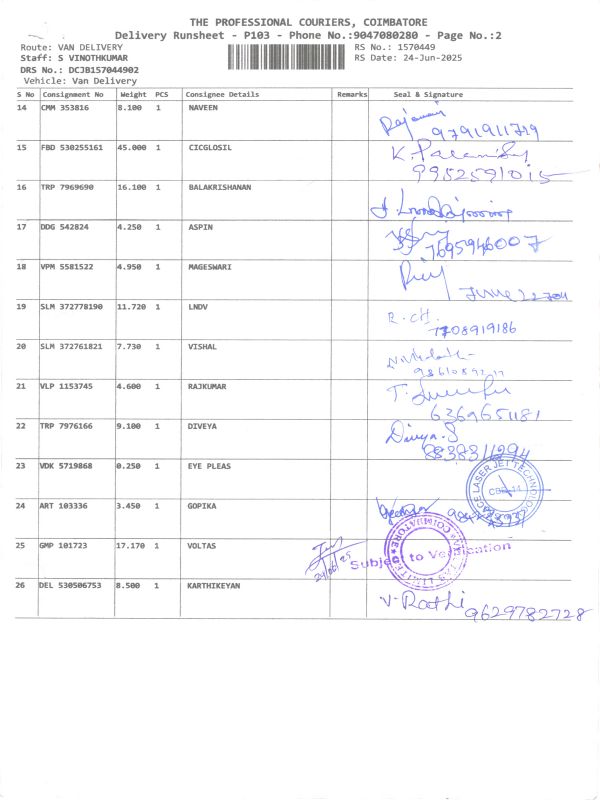 THE PROFESSIONAL COURIERS, COIMBATORE
Delivery Runsheet - P103 - Phone No.:9047080280 - Page No.:2
Route: VAN DELIVERY RS No.: 1570449
Staff: S VINOTHKUMAR RS Date: 24-Jun-2025
DRS No.: DCJB157044902
Vehicle: Van Delivery
S No Consignment No Weight PCS Consignee Details Remarks Seal & Signature
14 CMM 353816 8.100 1 NAVEEN
9791911719
15 FBD 530255161 45.000 1 CICGLOSIL K.
9952591015
16 TRP 7969690 16.100 1 BALAKRISHANAN
17 DDG 542824 4.250 1 ASPIN
7695946007
18 VPM 5581522 4.950 1 MAGESWARI
19 SLM 372778190 11.720 1 LNDV R. CH.
7708919186
20 SLM 372761821 7.730 1 VISHAL
21 VLP 1153745 4.600 1 RAJKUMAR
22 TRP 7976166 9.100 1 DIVEYA Divya.S
8838311294
23 VDK 5719868 0.250 1 EYE PLEAS
24 ART 103336 3.450 1 GOPIKA
25 GMP 101723 17.170 1 VOLTAS
Subject to Verification
26 DEL 530506753 8.500 1 KARTHIKEYAN V. Rathi
9629782728